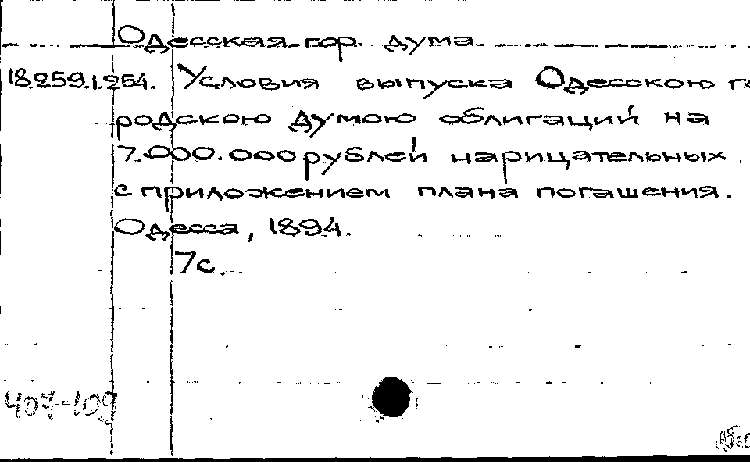 Одесская гор. дума.
18.259.1.254. Условия выпуска Одесскою го
родскою думою облигаций на
7.000.000 рублей нарицательных
с приложением плана погашения.
Одесса, 1894.
7с.
407-109